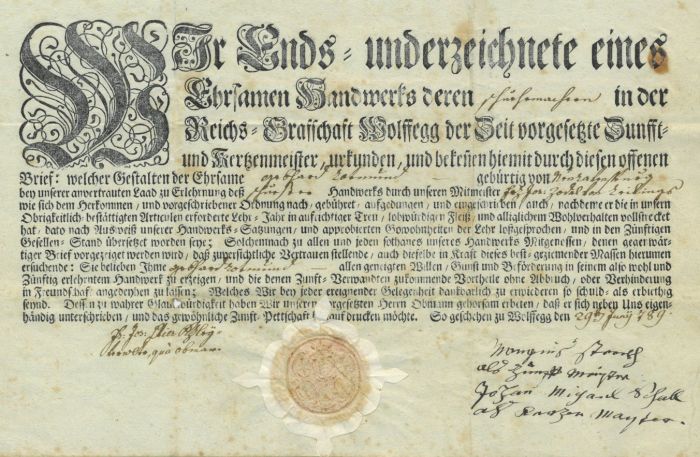 WIr Ends-underzeichnete eines
Ehrsamen Handwerks deren schuehemachern in der
Reichs-Graffschaft Wolffegg der Zeit vorgesetzte Zunfft-
und Kertzenmeister, urkunden, und bekeñen hiemit durch disen offenen
Brief: welcher Gestalten der Ehrsame gebhard gebürtig von
bey unserer anvertrauten Laad zu Erlehrnung deß Handwerks durch unseren Mitmeister
wie sich dem Herkommen, und vorgeschribener Ordnung nach, gebühret, aufgedungen, und eingeschriben, auch, nachdeme er die in unsern
Obrigkeitlich-bestättigten Articulen erforderte Lehr-Jahr in aufrichtiger Treu, lobwürdigen Fleiß, und alliglichem Wohlverhalten vollstrecket
hat, dato nach Ausweiß unserer Handwerks-Satzungen, und approbierten Gewohnheiten der Lehr loßgesprochen, und in den Zünfftigen
Gesellen-Stand übersetzet worden seye; Solchemnach zu allen und jeden sothanes unseres Handwerks Mitgenossen, denen gegenwär-
tiger Brief vorgezeiget werden wird, daß zuversichtliche Vertrauen stellende, auch dieselbe in Kraft dieses best-geziemender Massen hierumen
ersuchende: Sie belieben Ihme gebhard allen geneigten Willen, Gunst und Beförderung in seinem also wohl und
Zünftig erlehrntem Handwerk zu erzeigen, und die denen Zunft-Verwandten zukommende Vortheile ohne Abbruch, oder Verhinderung
in Freundschaft angedeyhen zu lassen; Welches Wir bey jeder ereignender Gelegenheit danckbarlich zu erwideren so schuld- als erbiethig
seynd. Dessen zu wahrer Glaubwürdigkeit haben Wir unsern vorgesetzten Herrn Obmann gehorsam erbeten, daß er sich neben Uns eigen-
händig unterschrieben, und das gewöhnliche Zunft-Pettschaft hierauf drucken möchte. So geschehen zu Wolffegg den 29ten Juny 789.
Jos:
qua obman.
storch
als Zunfft Meister
Johan Michael Schall
als Kerzen Mayster.